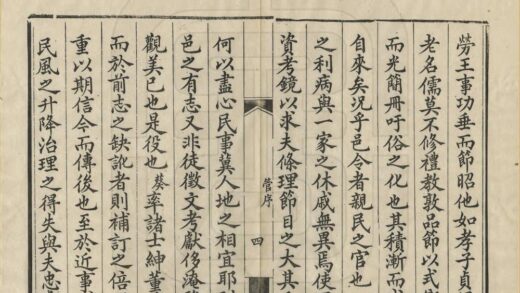 勞王事功垂而節昭他如孝子貞
老名儒莫不修禮教敦品節以式
而光簡冊吁俗之化也其積漸而
自來矣况乎邑令者親民之官也
之利病與一家之休戚無異焉使
資考鏡以求夫條理節目之大其
管序
四
何以盡心民事冀人地之相宜耶
邑之有志又非徒徵文考獻侈淹
觀美已也是役也葵率諸士紳董
而於前志之缺訛者則補訂之倍
重以期信今而傳後也至於近事
民風之升降治理之得失與夫忠